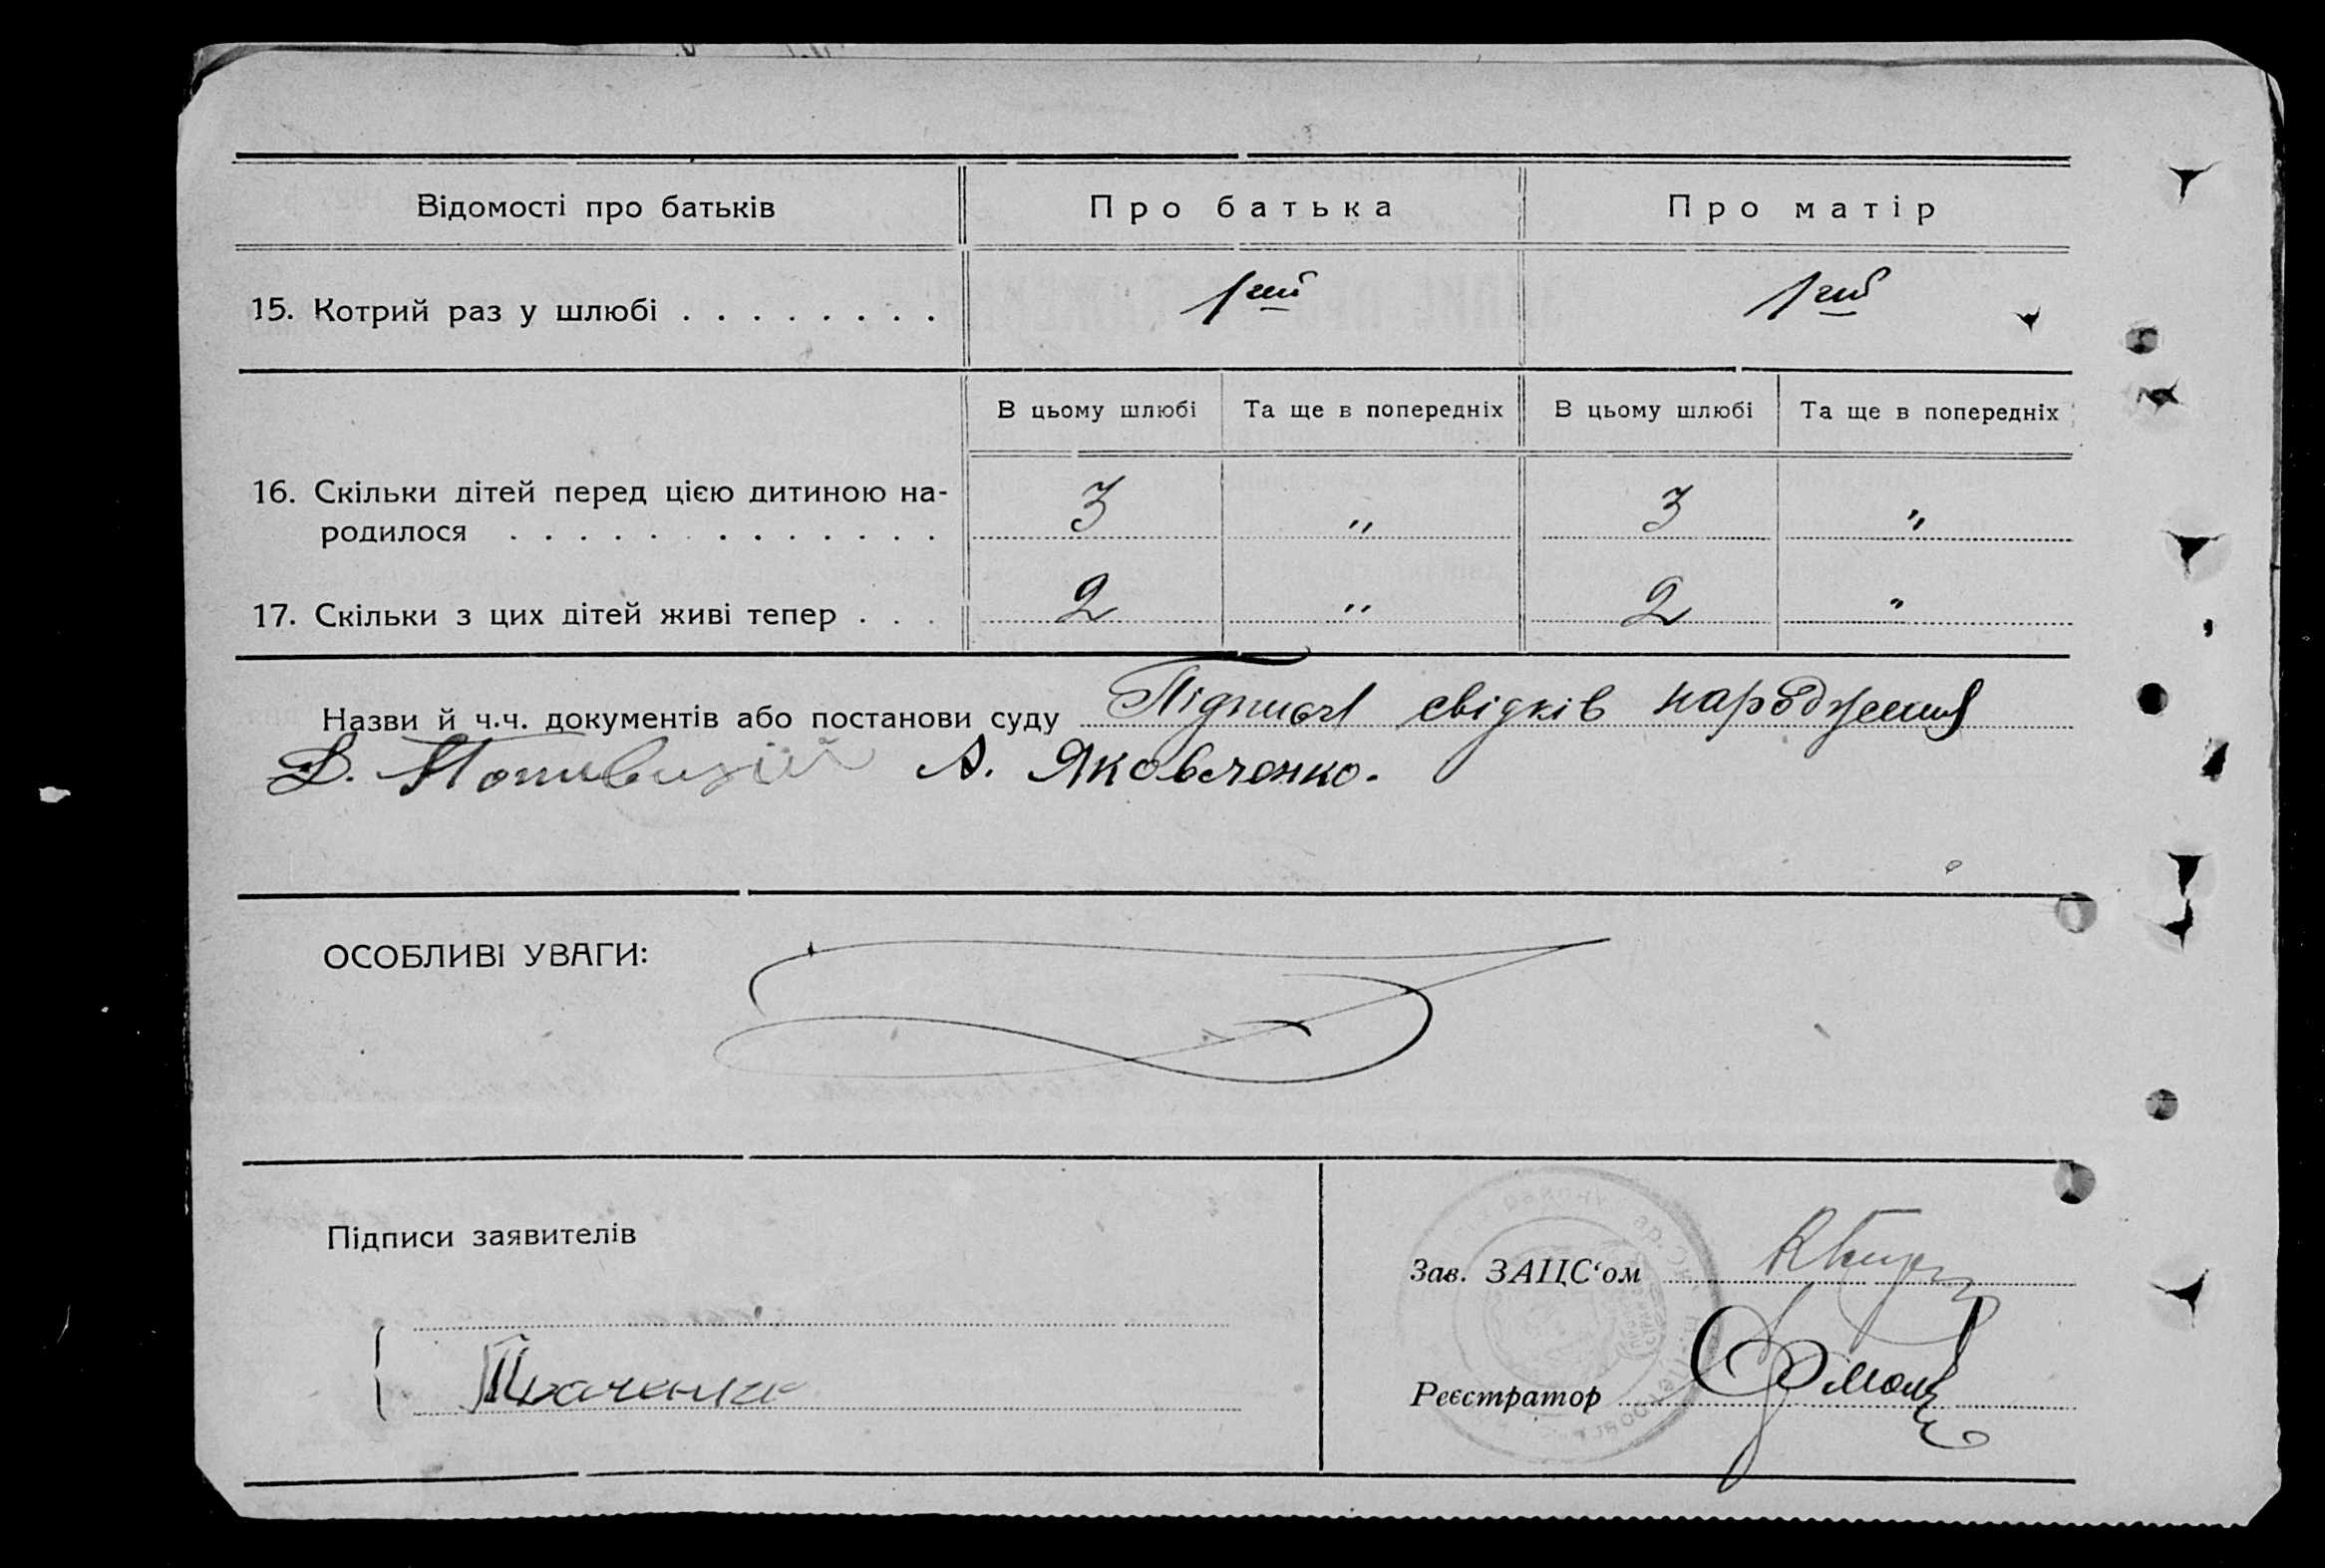 Відомості про батьків Про батька Про матір
15. Котрий раз у шлюбі . . . . . . . . 1ший 1ший
В цьому шлюбі Та ще в попередніх В цьому шлюбі Та ще в попередніх
16. Скільки дітей перед цією дитиною на-
родилося . . . . . . . . . . . . . 3 " 3 "
17. Скільки з цих дітей живі тепер . . . 2 " 2 "
Назви й ч.ч. документів або постанови суду Підписи свідків народження
А. Яковленко.
ОСОБЛИВІ УВАГИ:
Підписи заявителів
Зав. ЗАЦС‘ом
Ткаченко
Реєстратор